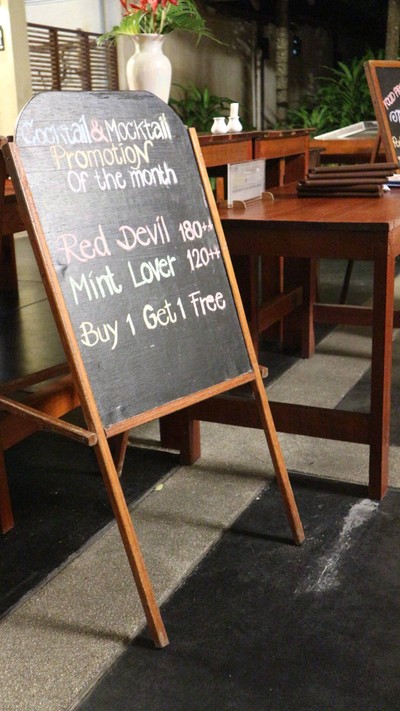 Cocktail & Mocktail
Promotion
Of the month
Red Devil 180++
Mint Lover 120++
Buy 1 Get 1 Free